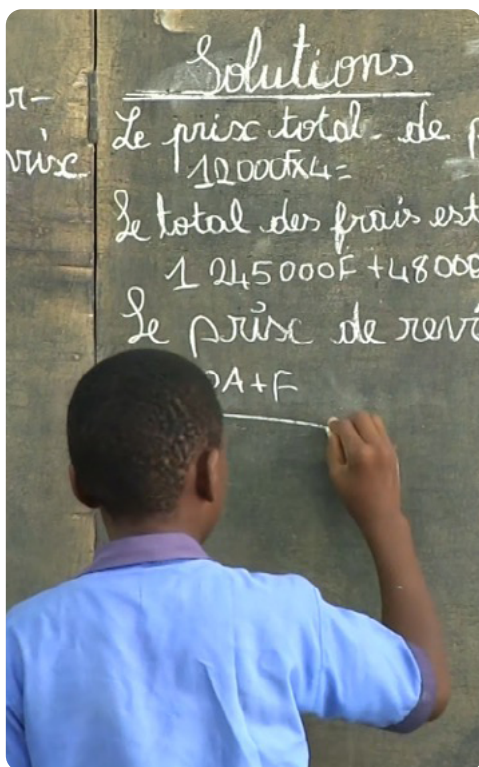 r-
Solutions
Le prix total de p
vrix
12000Fx4=
Le total des frais est
1 245000F +48000
Le prix de revi
PA+F